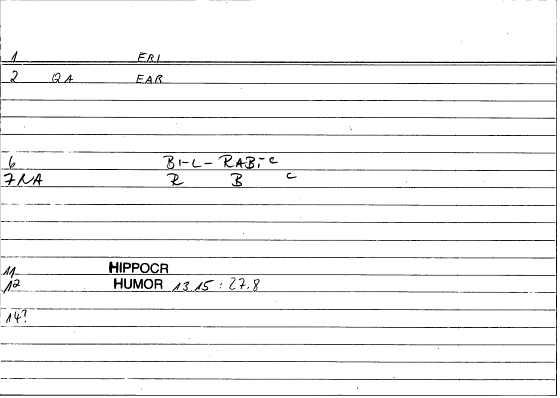 1 ERI
2 QA EAR
6 BI-L-RABI-C
7 NA R B C
11 HIPPOCR
12 HUMOR 13.15 : 27.8
14?